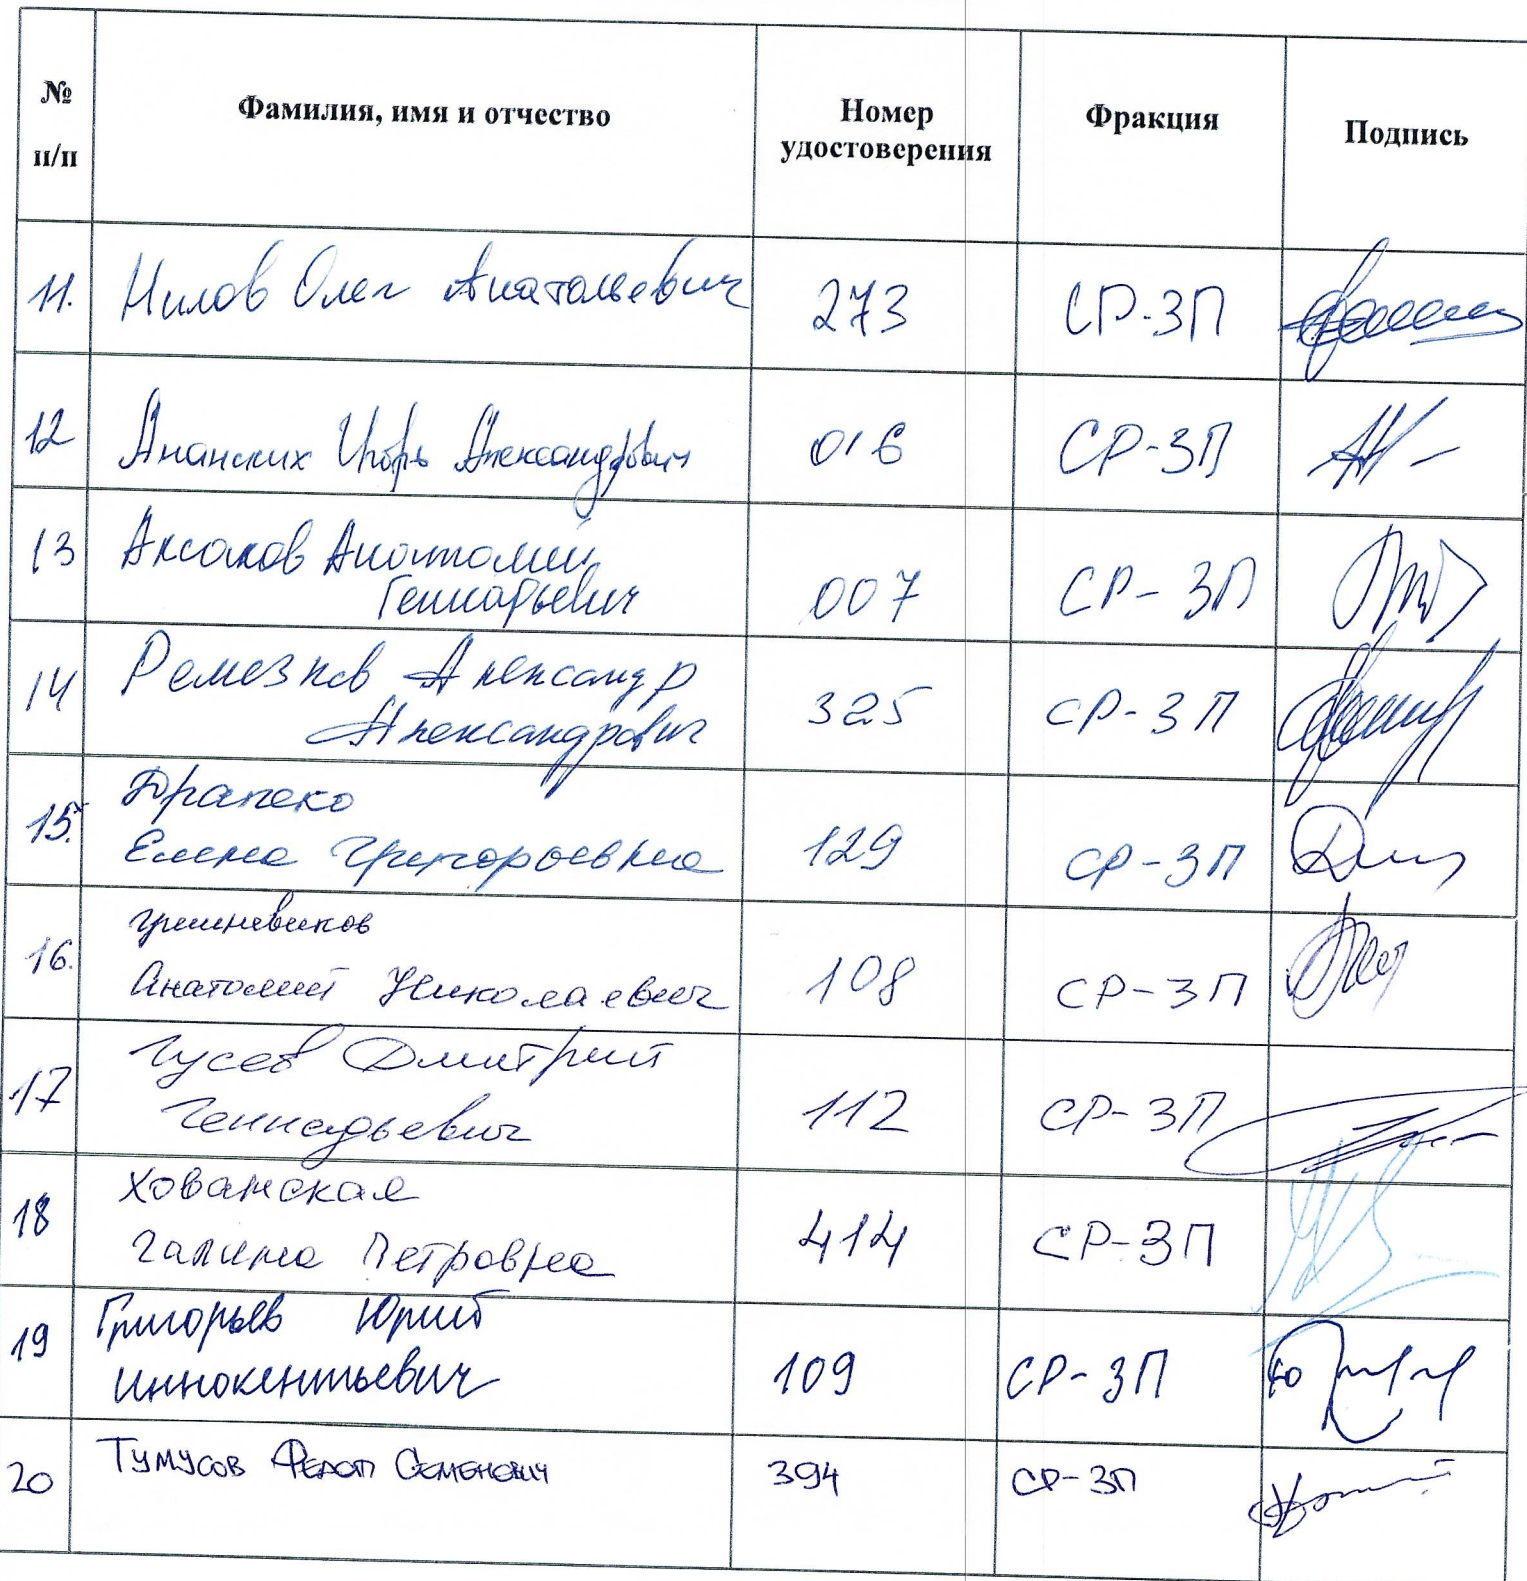 № п/п Фамилия, имя и отчество Номер удостоверения Фракция Подпись
11. Нилов Олег Анатольевич 273 СР-ЗП
12 Ананских Игорь Александрович 016 СР-ЗП
13 Аксаков Анатолий
Геннадьевич 007 СР-ЗП
14 Ремезков Александр
Александрович 325 СР-ЗП
15. Драпеко
Елена Григорьевна 129 СР-ЗП
16. Грешневиков
Анатолий Николаевич 108 СР-ЗП
17 Гусев Дмитрий
Геннадьевич 112 СР-ЗП
18 Хованская
Галина Петровна 414 СР-ЗП
19 Григорьев Юрий
Иннокентьевич 109 СР-ЗП
20 Тумусов Федот Семенович 394 СР-ЗП